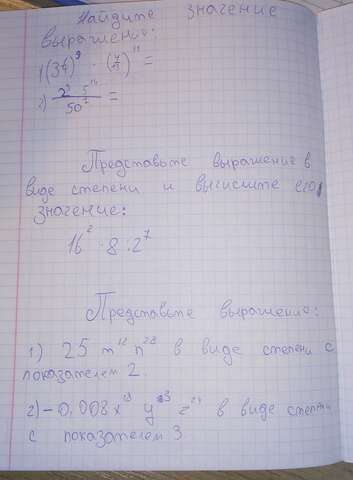 Найдите значение
выражения:
1) (3 1/4)⁹ · (4/13)¹¹ =
2) 2⁹ · 5¹⁴ / 50⁷ =
Представьте выражение в
виде степени и вычислите его
значение:
16² · 8 : 2⁷
Представьте выражение:
1) 25 m¹² n²⁸ в виде степени с
показателем 2.
2) - 0,008 x¹⁸ y³ z²⁴ в виде степени
с показателем 3